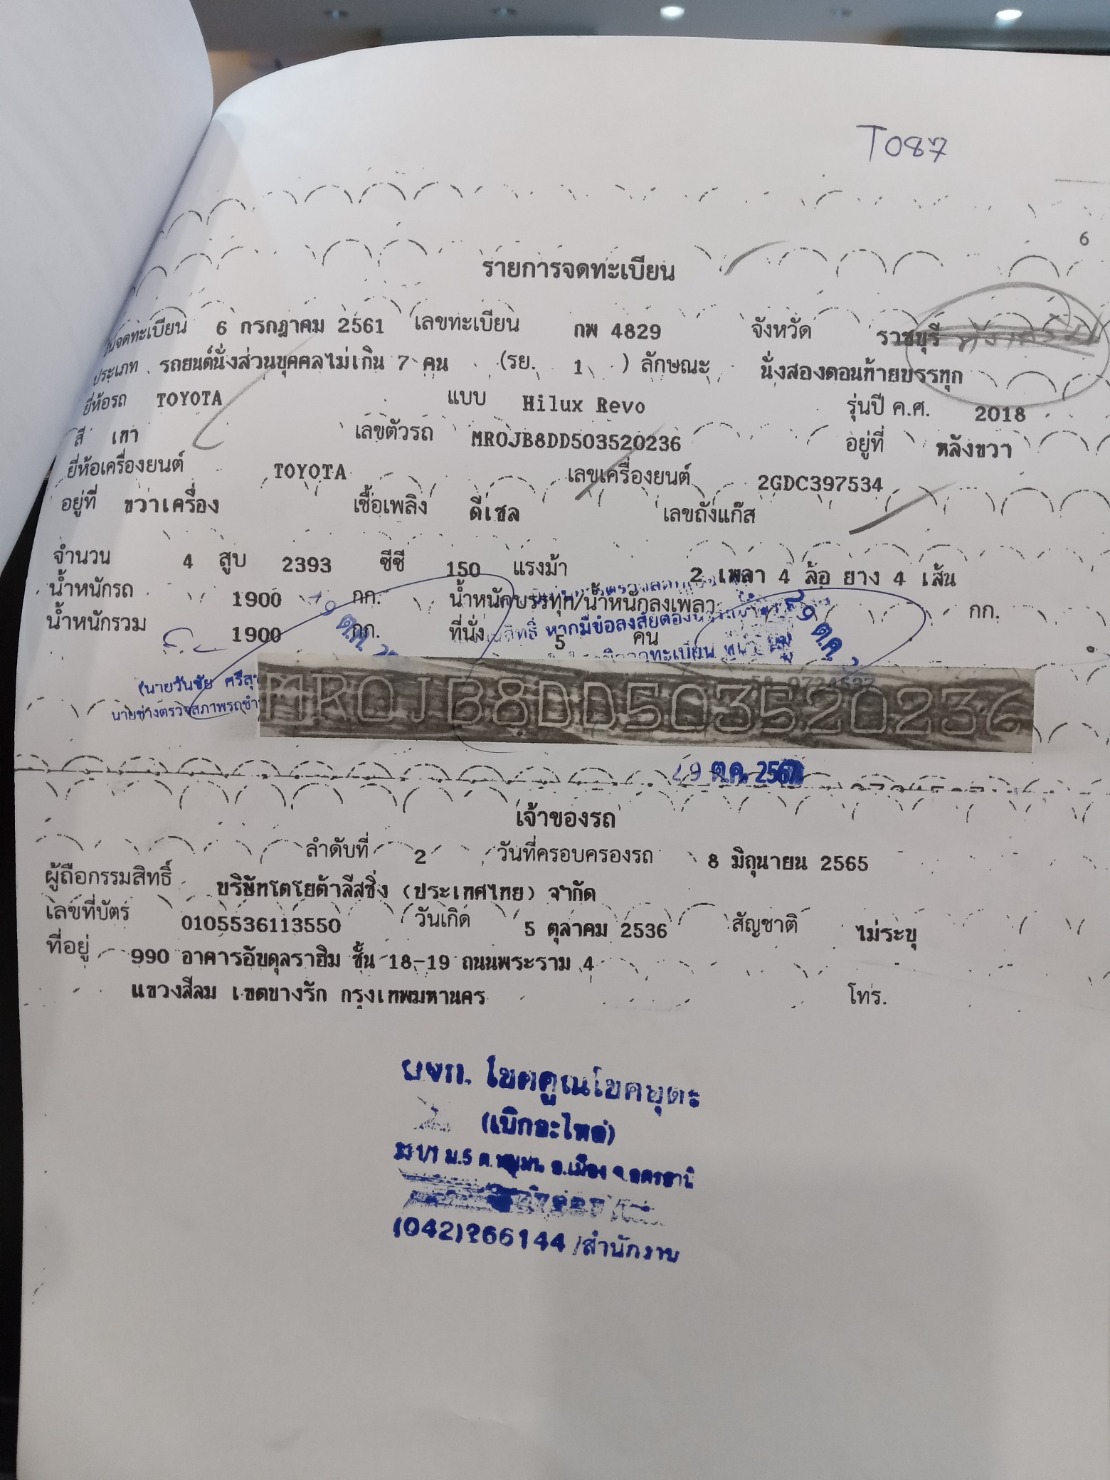 T087
6
รายการจดทะเบียน
วันจดทะเบียน 6 กรกฎาคม 2561 เลขทะเบียน กพ 4829 จังหวัด ราชบุรี
ประเภท รถยนต์นั่งส่วนบุคคลไม่เกิน 7 คน (รย. 1 ) ลักษณะ นั่งสองตอนท้ายบรรทุก
ยี่ห้อรถ TOYOTA แบบ Hilux Revo รุ่นปี ค.ศ. 2018
สี เทา เลขตัวรถ MR0JB8DD503520236 อยู่ที่ หลังขวา
ยี่ห้อเครื่องยนต์ TOYOTA เลขเครื่องยนต์ 2GDC397534
อยู่ที่ ขวาเครื่อง เชื้อเพลิง ดีเซล เลขถังแก๊ส
จำนวน 4 สูบ 2393 ซีซี 150 แรงม้า 2 เพลา 4 ล้อ ยาง 4 เส้น
น้ำหนักรถ 1900 กก. น้ำหนักบรรทุก/น้ำหนักลงเพลา กก.
น้ำหนักรวม 1900 กก. ที่นั่ง 5 คน
หากมีข้อสงสัย
29 ต.ค.
(นายวันชัย
นายช่างตรวจสภาพรถ
MR0JB8DD503520236
29 ต.ค. 2567
เจ้าของรถ
ลำดับที่ 2 วันที่ครอบครองรถ 8 มิถุนายน 2565
ผู้ถือกรรมสิทธิ์ บริษัทโตโยต้าลีสซิ่ง (ประเทศไทย) จำกัด
เลขที่บัตร 0105536113550 วันเกิด 5 ตุลาคม 2536 สัญชาติ ไม่ระบุ
ที่อยู่ 990 อาคารอับดุลราฮิม ชั้น 18-19 ถนนพระราม 4
แขวงสีลม เขตบางรัก กรุงเทพมหานคร โทร.
หจก. โชคคูณโชคอุดร
(เบิกอะไหล่)
ม.5 ต.หมูม่น อ.เมือง จ.อุดรธานี
(042)266144 /สำนักงาน